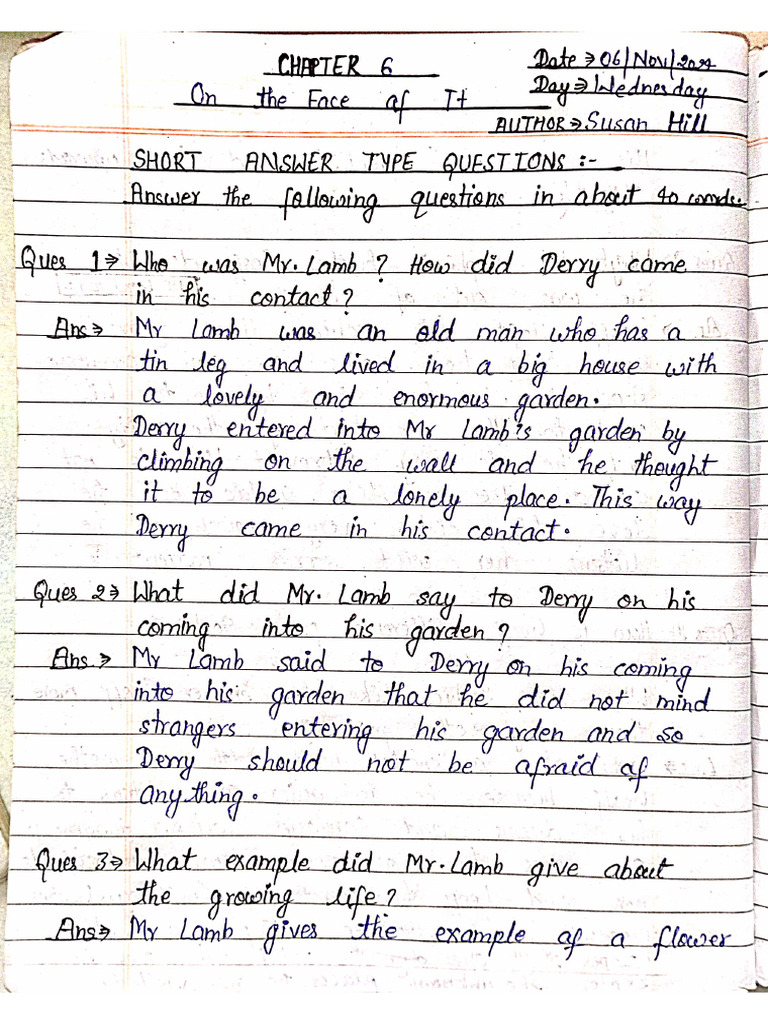 CHAPTER 6
Date → 06/Nov/2024
On the Face of It
Day → Wednesday
AUTHOR → Susan Hill
SHORT ANSWER TYPE QUESTIONS :-
Answer the following questions in about 40 words.
Ques 1 → Who was Mr. Lamb ? How did Derry came
in his contact ?
Ans → Mr Lamb was an old man who has a
tin leg and lived in a big house with
a lovely and enormous garden.
Derry entered into Mr Lamb's garden by
climbing on the wall and he thought
it to be a lonely place. This way
Derry came in his contact.
Ques 2 → What did Mr. Lamb say to Derry on his
coming into his garden ?
Ans → Mr Lamb said to Derry on his coming
into his garden that he did not mind
strangers entering his garden and so
Derry should not be afraid of
anything.
Ques 3 → What example did Mr. Lamb give about
the growing life ?
Ans → Mr Lamb gives the example of a flower